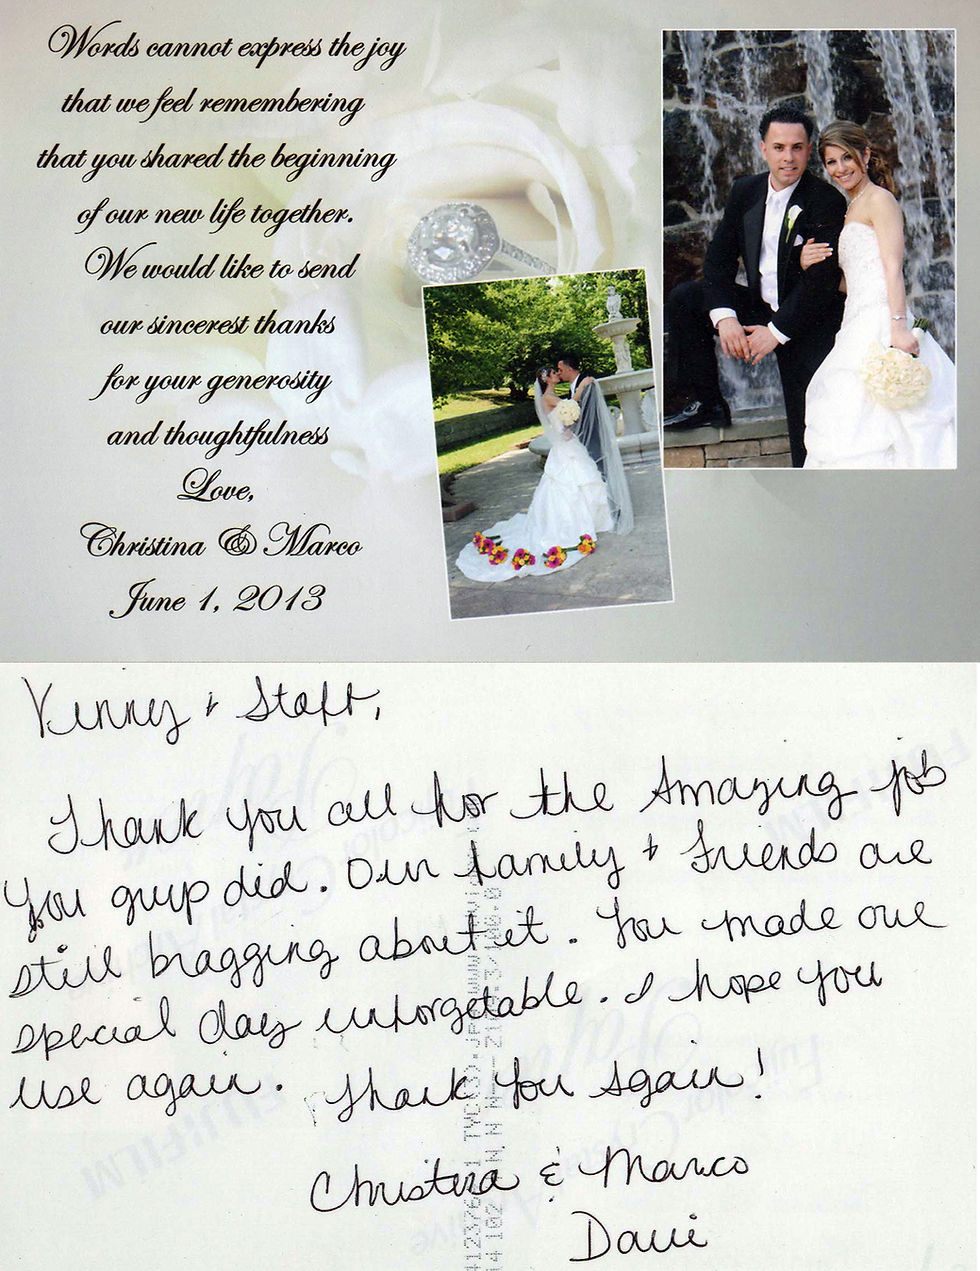 Words cannot express the joy
that we feel remembering
that you shared the beginning
of our new life together.
We would like to send
our sincerest thanks
for your generosity
and thoughtfulness
Love,
Christina & Marco
June 1, 2013
& Staff,
Thank you all for the Amazing job
you guys did. Our family & friends are
still bragging about it. You made our
special day unforgetable. I hope you
use again. Thank you Again!
Christina & Marco
FUJIFILM
FUJIFILM